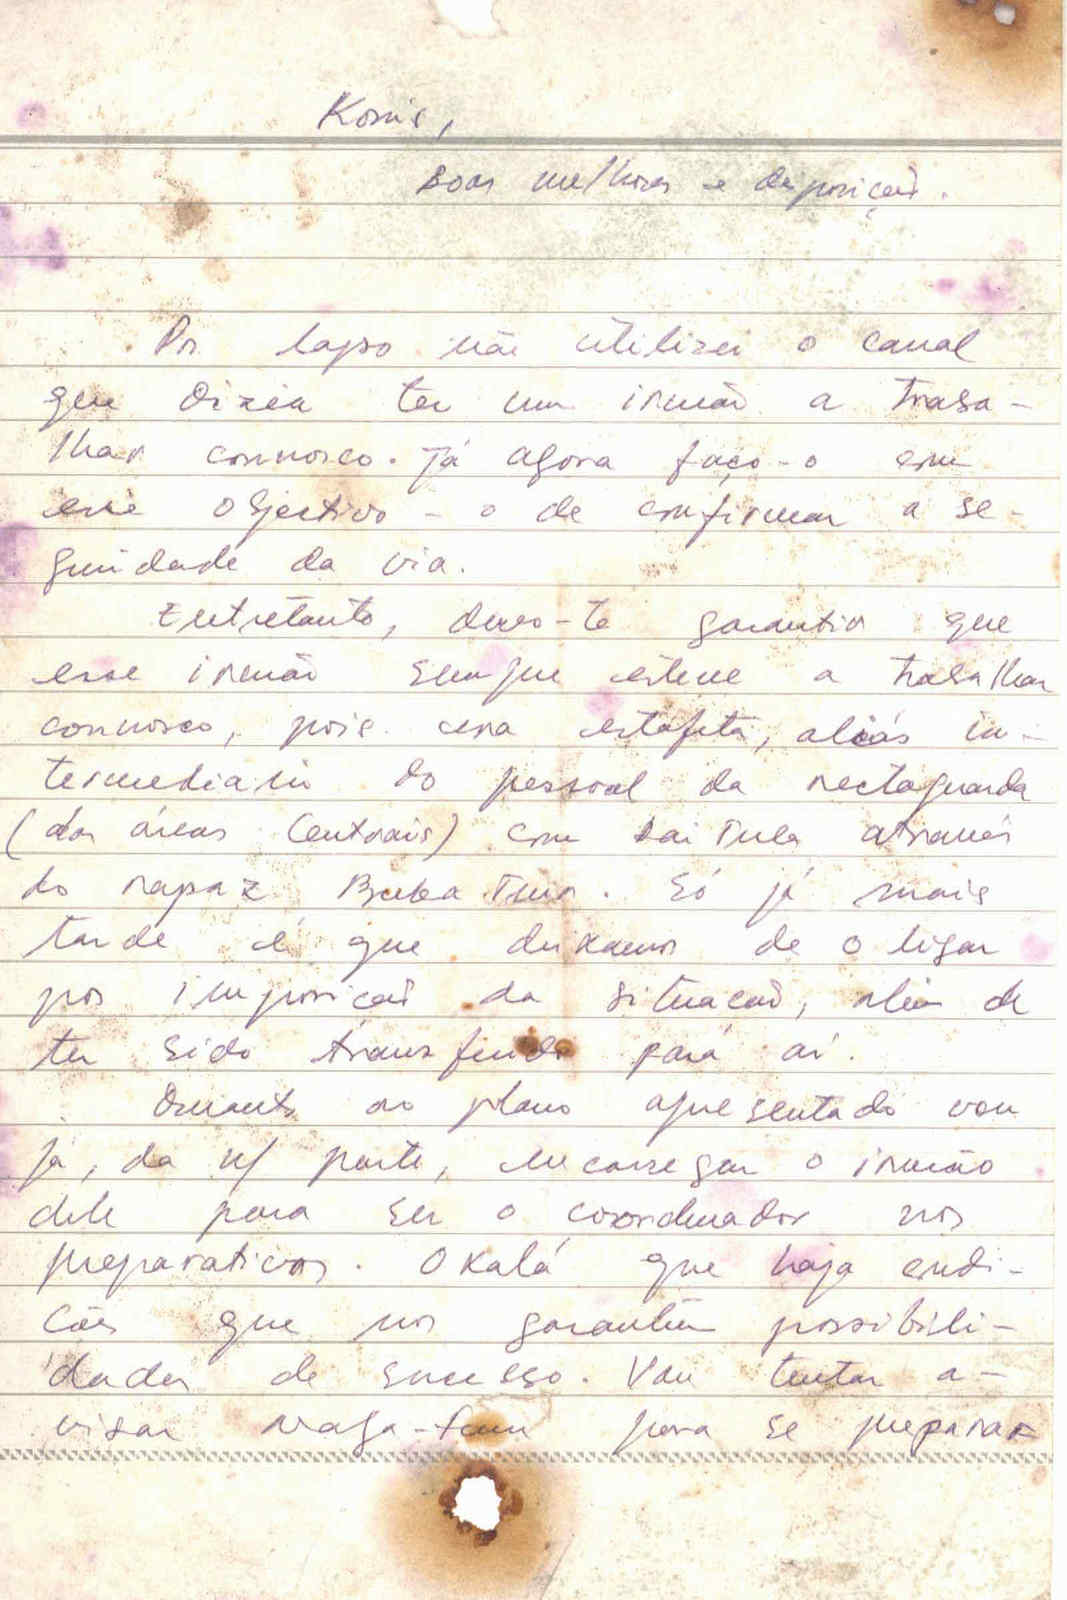 Konis,
Boas melhoras e disposição.
Por lapso não utilizei o canal
que dizia ter um irmão a traba-
lhar connosco. Já agora faço-o com
esse objectivo - o de confirmar a se-
guridade da via.
Entretanto, devo-te garantir que
esse irmão sempre esteve a trabalhar
connosco, pois era estafeta, aliás in-
termediário do pessoal da rectaguarda
(das áreas Centrais) com Lai Tula através
do rapaz Buka Tuir. Só já mais
tarde é que deixamos de o ligar
por imposição da situação, além de
ter sido transferido para aí.
Quanto ao plano apresentado vou
já, da n/ parte, encarregar o irmão
dele para ser o coordenador nos
preparativos. Oxalá que haja condi-
ções que nos garantem possibili-
dades de sucesso. Vou tentar a-
visar para se preparar